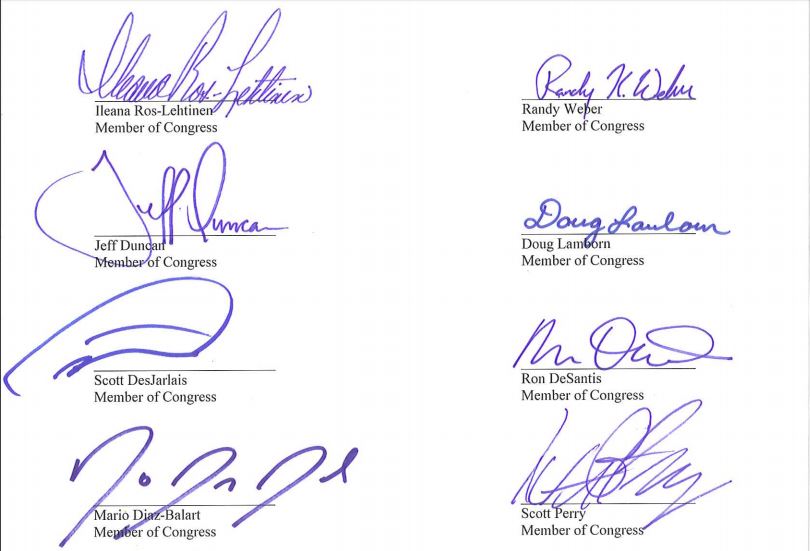 Ileana Ros-Lehtinen
Randy K. Weber
Ileana Ros-Lehtinen
Randy Weber
Member of Congress
Member of Congress
Jeff Duncan
Doug Lamborn
Jeff Duncan
Doug Lamborn
Member of Congress
Member of Congress
Scott DesJarlais
Ron DeSantis
Member of Congress
Member of Congress
Mario Diaz-Balart
Scott Perry
Member of Congress
Member of Congress